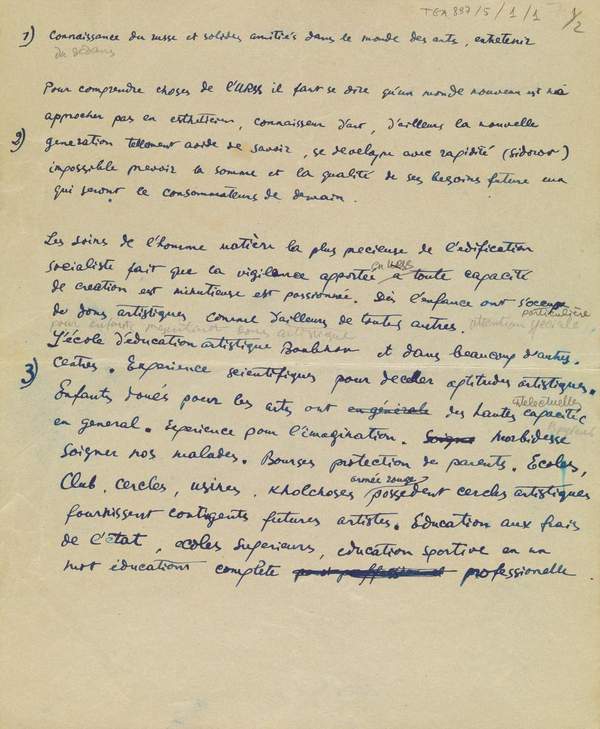 TGA 897/5/1/1 1/2
1) Connaissance du russe et solides amitiés dans le monde des arts, entretenir
du dedans
Pour comprendre choses de l'URSS il faut se dire qu'un monde nouveau est né
approcher pas en esthéticien, connaisseur d'art, d'ailleurs la nouvelle
2) generation tellement avide de savoir, se developpe avec rapidité (Sidorov)
impossible prevoir la somme et la qualité de ses besoins future eux
qui seront le consommateurs de demain.
Les soins de l'homme matière la plus precieuse de l'edification
en URSS
socialiste fait que la vigilance apportée a toute capacité
de creation est minutieuse est passionnée. Dès l'enfance ont s'occupe
particulière
de dons artistiques comme d'ailleurs de toutes autres. attention speciale
pour enfants dons artistique
L'école d'éducation artistique et dans beaucoup d'autres.
3) Centres. Experience scientifiques pour deceller aptitudes artistiques.
intelectuelles
Enfants doués pour les arts ont en générale des hautes capacités
en general. Experience pour l'imagination. Soigne Morbidesse
Soigner nos malades. Bourses protection de parents. Ecoles,
armée rouge
Club, cercles, usines, Kholchoses possedent cercles artistiques
fournissent contigents futures artistes. Education aux frais
de l'état, ecoles superieurs, education sportive en un
mot éducations complete professionelle.